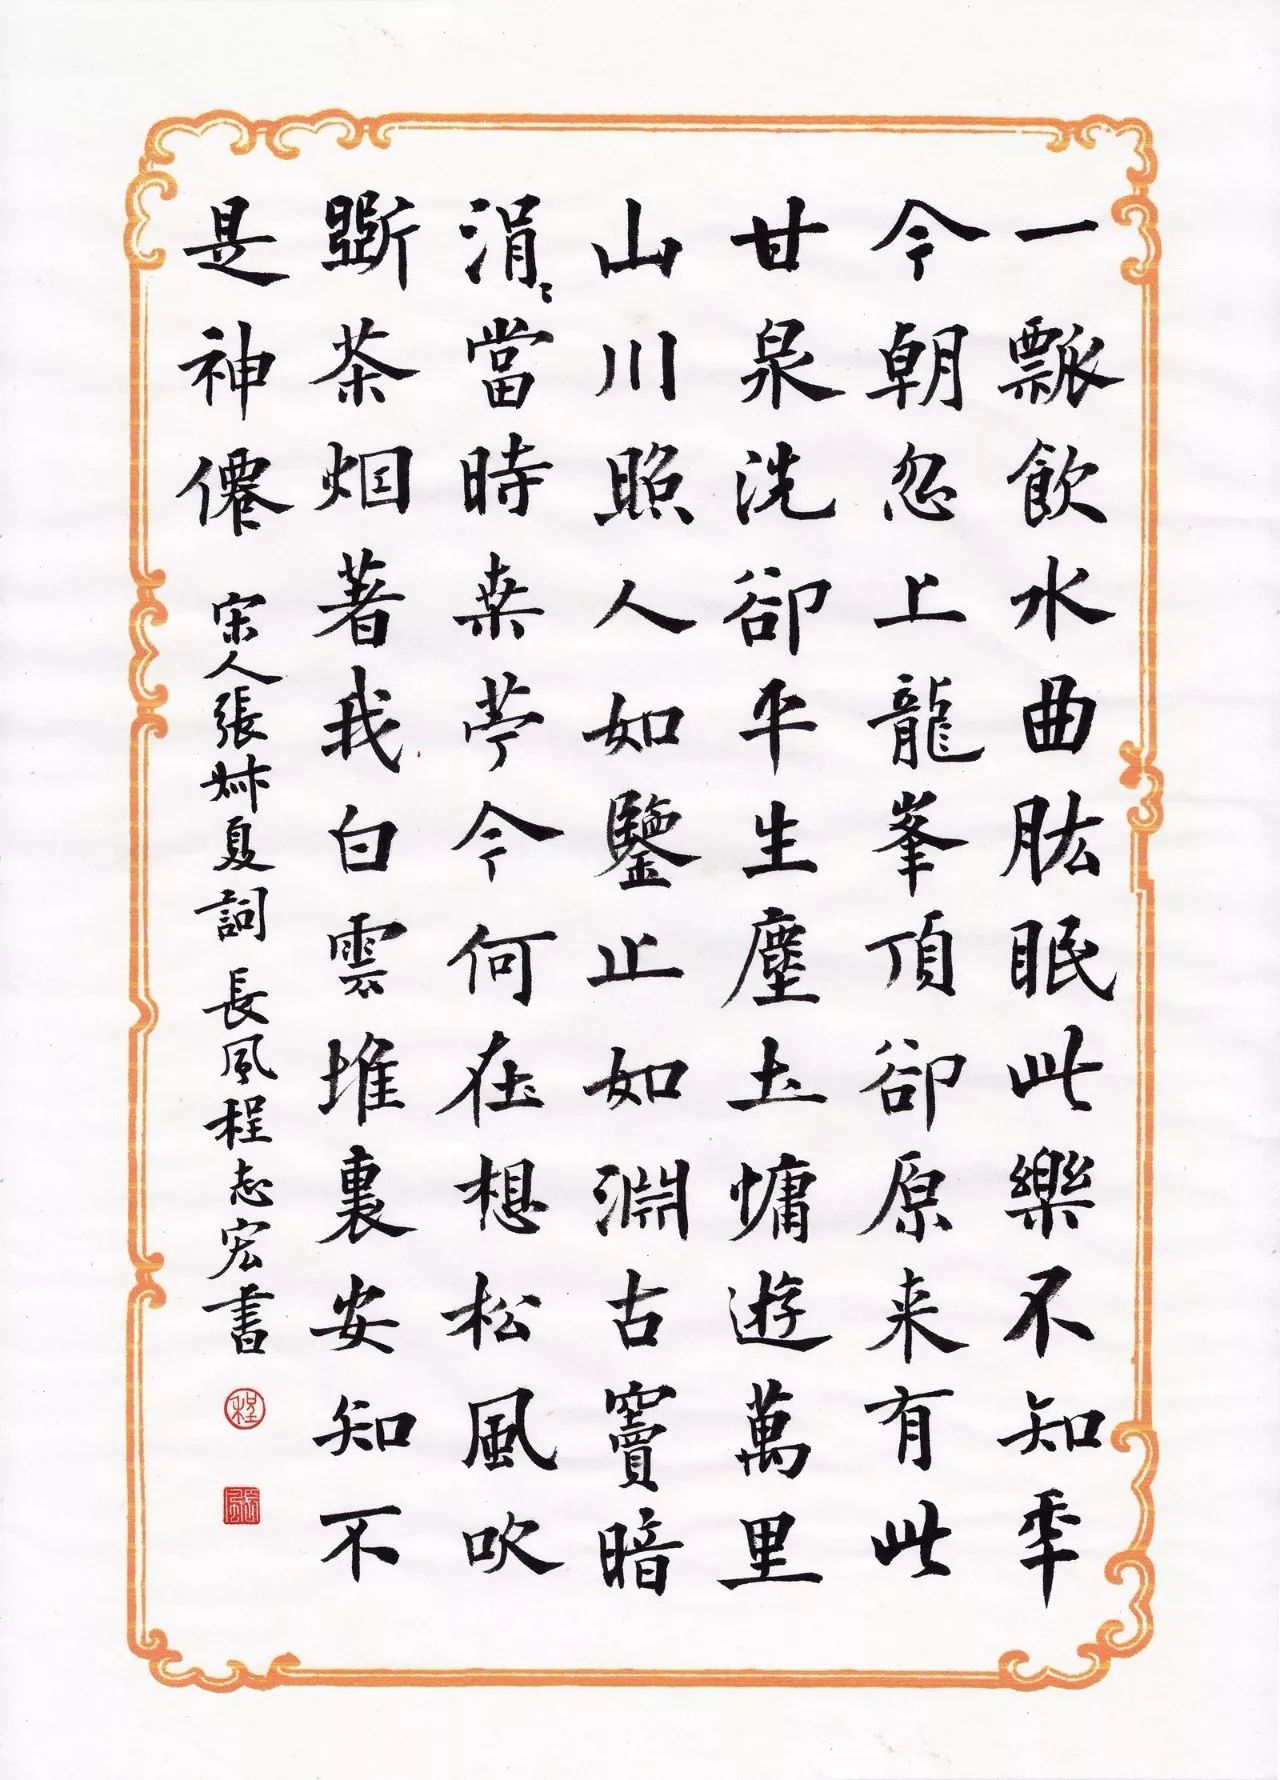 一瓢飲水曲肱眠此樂不知年
今朝忽上龍峯頂卻原来有此
甘泉洗卻平生塵土慵遊萬里
山川照人如鑒止如淵古竇暗
涓〻當時桒苧今何在想松風吹
斷茶烟著我白雲堆裏安知不
是神僊 宋人張叔夏詞 長風程志宏書
程